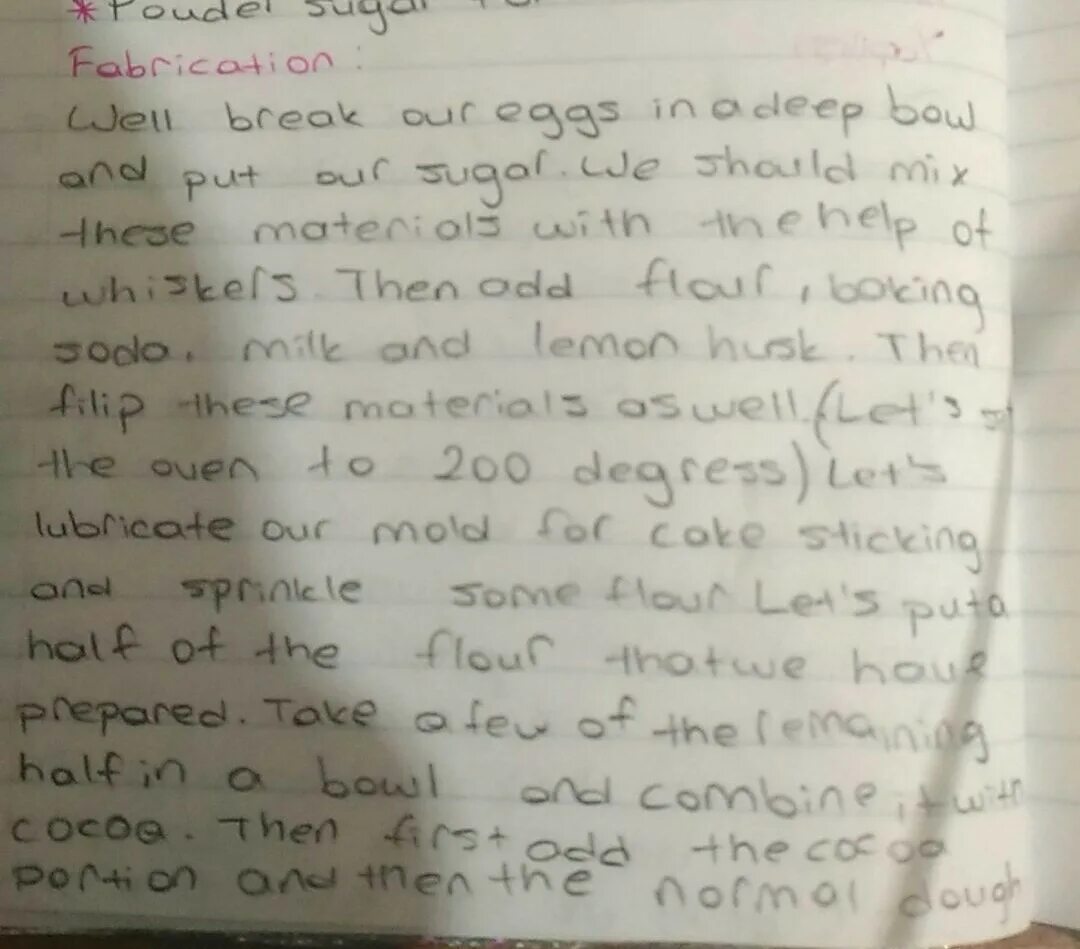 * Poudel sugar
Fabrication:
Well break our eggs in a deep bowl
and put our sugar. We should mix
these materials with the help of
whiskers. Then add flour, baking
soda, milk and lemon husk. Then
filip these materials as well. (Let's
the oven to 200 degress) Let's
lubricate our mold for cake sticking
and sprinkle some flour Let's put a
half of the flour that we have
prepared. Take a few of the remaining
half in a bowl and combine it with
cocoa. Then first add the cocoa
portion and then the normal dough